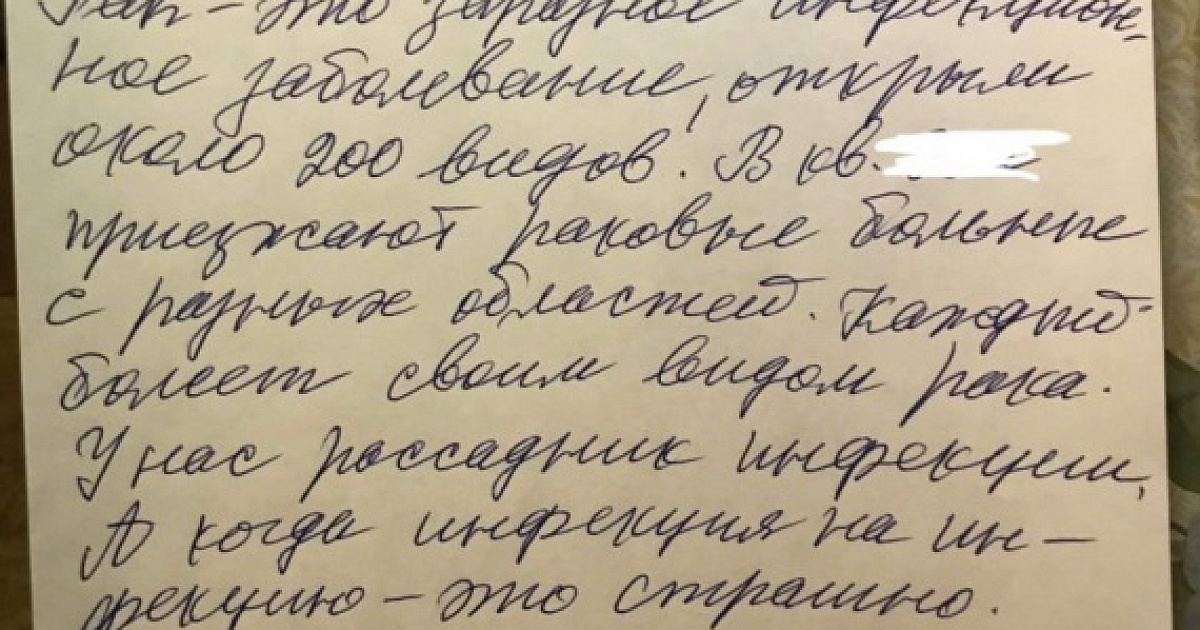 Рак - это заразное инфекцион-
ное заболевание, открыли
около 200 видов. В кв.
приезжают раковые больные
с разных областей. Каждый
болеет своим видом рака.
У нас рассадник инфекции,
А когда инфекция на ин-
фекцию - это страшно.